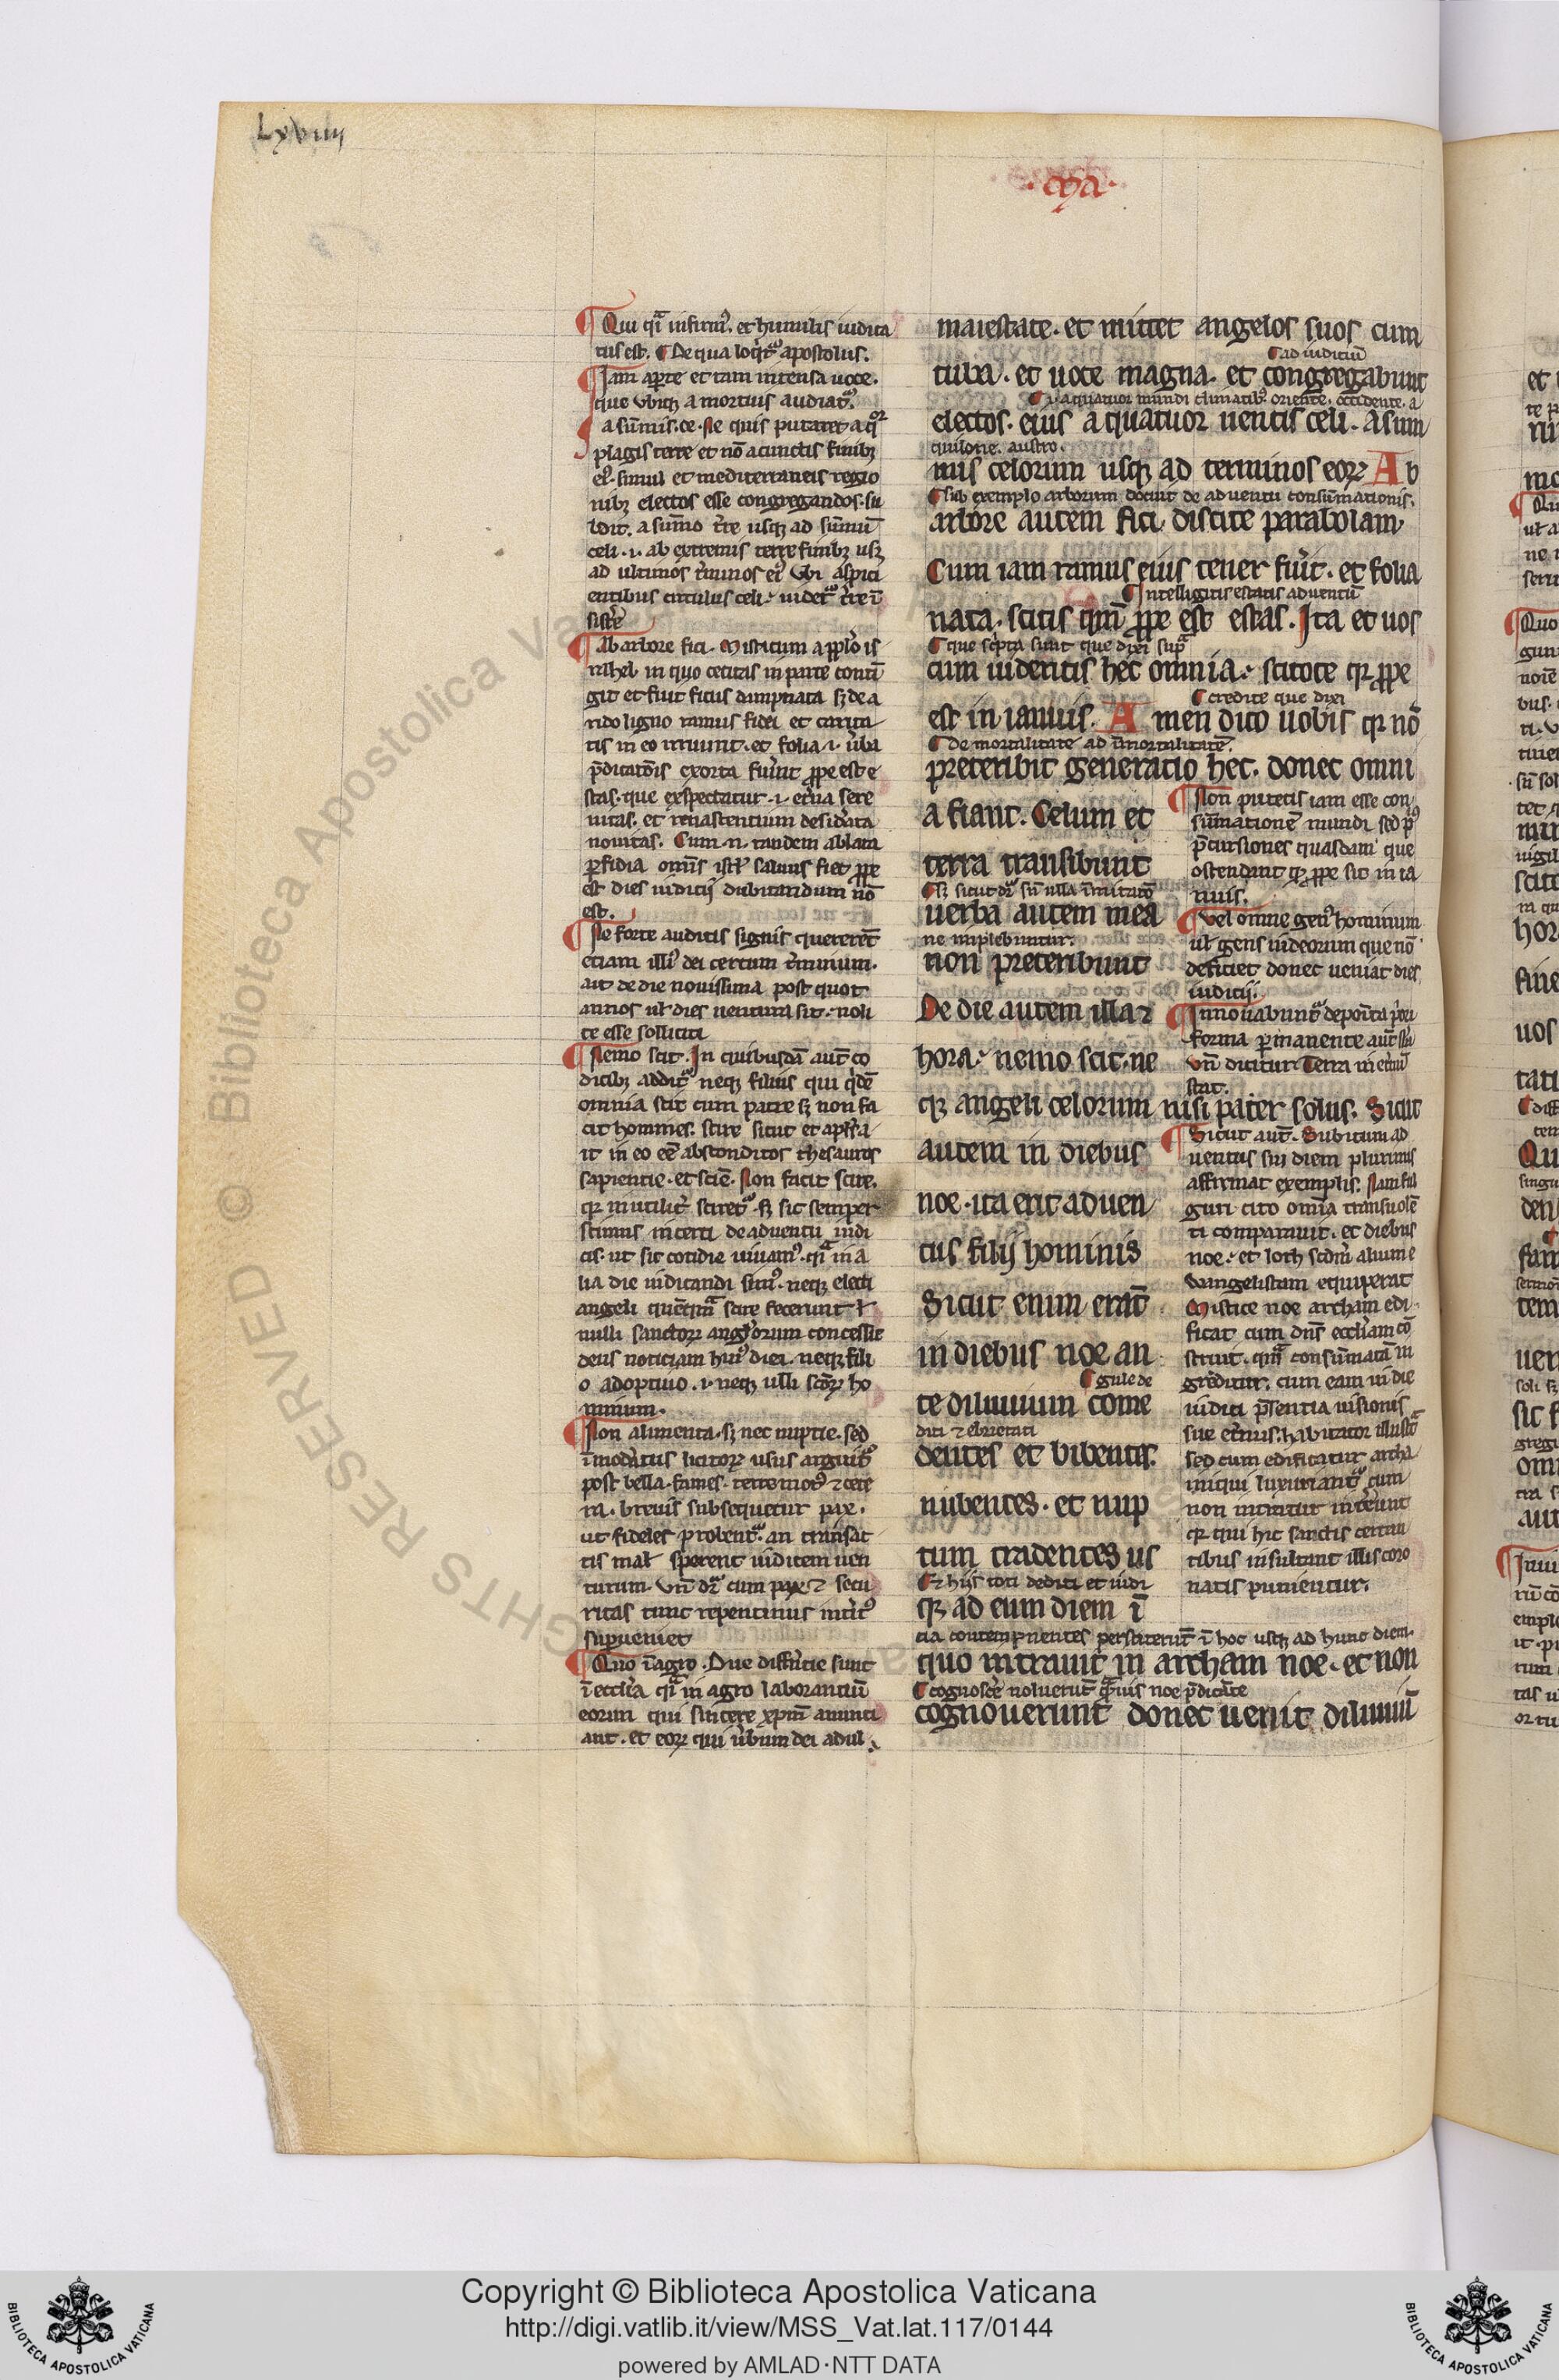 Lxviiij
.ma.
Qui qͥa infirmꝰ. et humilis iudica
tus est. De qua loqͥt᷑ apostolus.
Iam aperte et tam intensa uoce.
que ubiqꝫ a mortuis audiat᷑.
a sūmis. ce. Ne quis putaret a qͣꝛ
plagis terre et nō a cunctis finibꝫ
eiꝰ. simul et mediterraneis regio
nibꝫ electos esse congregandos. su
bdit. a sūmo t̾re usqꝫ ad sūmū
celi .i. ab extremis terre finibꝫ usqꝫ
ad ultimos t̾minos eiꝰ ubi aspici
entibus circulus celi uidet᷑ t̾re ī
sist̾e
Ab arbore fici. Misticum a pplo is
rahel in quo cecitas in parte conti
git et fuit ficus dampnata sꝫ de a
rido ligno ramus fidei et carita
tis in eo uiuunt. et folia .i. u̾ba
p̄dicatōis exorta fu̾int ꝓpe est e
stas. que exspectatur .i. et̾na sere
nitas. et renascentium desid̾ata
nouitas. Cum .n. tandem ablata
ꝑfidia omīs isrl̾ saluus fiet ꝓpe
est dies iudicij dubitandum nō
est.
Ne forte auditis signis quererēt
etiam illiꝰ dei certum t̾minum.
ait de die nouissima post quot
annos ul̾ dies uentura sit. noli
te esse solliciti
Nemo scit. In quibusdā aut̄ co
dicibꝫ addit᷑ neqꝫ filius qui qͥdē
omnia scit cum patre sꝫ non fa
cit homines scire sicut et apl̾s a
it in eo eē absconditos thesauros
sapientie. et sciē. Non facit scire.
qꝛ inutilit̾ sciret᷑. sꝫ sic semper
simus incerti de aduentu iudi
cis. ut sic cotidie uiuamꝰ. qͣ in a
lia die iudicandi simꝰ. neqꝫ electi
angeli
nulli sanctoꝝ angl̾orum concessit
deus noticiam huiꝰ diei. neqꝫ fili
o adoptiuo .i. neqꝫ ulli scōꝝ ho
minum.
Non alimenta. sꝫ nec nuptie. sed
īmod̾atus licitoꝝ usus arguit᷑
post bella. fames. terremotꝰ ⁊ cete
ra. breuis subsequetur pax.
ut fideles probent᷑. an transac
tis mal̾ sperent iudicem uen
turum. un̄ dr̄ cum pax ⁊ secu
ritas tunc repentinus int̾itꝰ
supueniet
Quo ī agro. Due diffr̄entie sunt
ī eccl̾ia qͣ in agro laborantiū
eorum qui sincere xp̄m anunci
ant. et eoꝝ qui u̾bum dei adul
maiestate. et mittet angelos suos cum
ad iudiciū
tuba. et uoce magna. et congregabunt
.i. a quatuor mundi climatibꝫ. oriente. occidente. a
electos. eius a quatuor uentis celi. a sum
quilone. austro.
mis celorum usqꝫ ad terminos eoꝝ Ab
sub exemplo arborum docuit de aduentu consūmationis.
arbore autem fici discite parabolam
Cum iam ramus eius tener fu̾it. et folia
Intelligitis estatis aduentū
nata. scitis qm̄ ꝓpe est estas. Ita et uos
que sc̾pta sunt que dixi supͣ
cum uideritis hec omnia. scitote qꝛ ꝓpe
credite que dixi
est in ianuis. Amen dico uobis qꝛ nō
de mortalitate ad īmortalitatē.
preteribit generatio hec. donec omni
a fiant. Celum et
terra transibunt
sꝫ sicut dr̄ sn̄ ulla īmutatiō
uerba autem mea
ne implebuntur.
non preteribunt
De die autem illa ⁊
hora. nemo scit. ne
qꝫ angeli celorum nisi pater solus. Sicut
autem in diebus
noe. ita erit aduen
tus filij hominis
Sicut enim erāt
in diebus noe an
gule de
te diluuium come
diti ⁊ ebrietati
dentes et bibentes.
nubentes. et nup
tum tradentes us
⁊ hijs toti dediti et iudi
qꝫ ad eum diem ī
cia contempnentes perstiterūt ī hoc usqꝫ ad hunc diem.
quo intrauit in archam noe. et non
cognosc̾e noluerūt qͣmuis noe p̄dicāte
cognouerunt donec uenit diluuiū
Non putetis iam esse con
sūmationē mundi sed pͥus
p̄cursiones quasdam que
ostendant qꝫ ꝓpe sit in ia
nuis.
Vel omne genꝰ hominum
ul̾ gens iudeorum que nō
deficiet donec ueniat dies
iudicij.
Innouabunt᷑ deposita pͥori
forma ꝑmanente
un̄ dicitur Terra in et̾nū
stat.
Sicut aut̄. Subitum ad
uentus sui diem plurimis
affirmat exemplis. Nam ful
guri cito omīa transuolē
ti comparauit. et diebus
noe. et loth scdm̄ alium e
uangelistam equiperat
Mistice noe archam edi
ficat cum dn̄s eccl̾iam cō
struit. qͣm consūmatā in
greditur. cum eam in die
iudicij p̄sentia uisionis
sue et̾nus habitator illustͣt
sed cum edificatur archa
iniqui luxuriant᷑ cum
non intratur int̾eunt
qꝛ qui hic sanctis certan
tibus insultant illis coro
natis punientur.
Copyright © Biblioteca Apostolica Vaticana
http://digi.vatlib.it/view/MSS_Vat.lat.117/0144
powered by AMLAD·NTT DATA
BIBLIOTECA APOSTOLICA VATICANA
BIBLIOTECA APOSTOLICA VATICANA